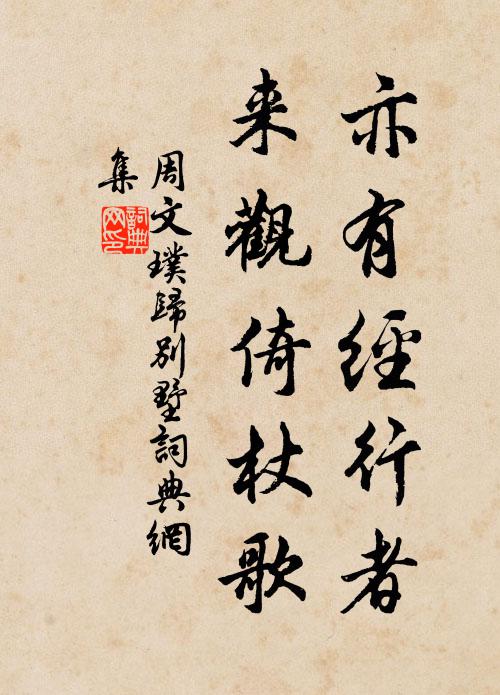 亦有經行者
来觀倚杖歌
周文璞歸別墅詞典網
集
詞典
网印